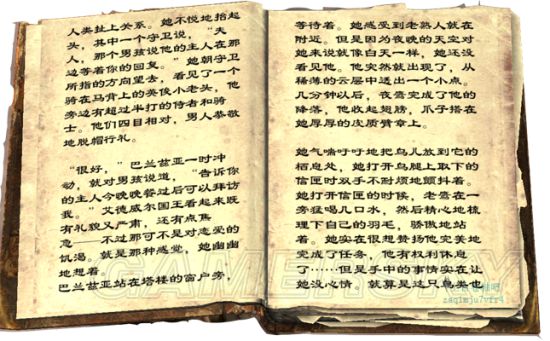 人类扯上关系。她不悦地抬起
头，其中一个守卫说，“夫
人，那个男孩说他的主人在那
边等着你的回复。”她朝守卫
所指的方向望去，看见了一个
骑在马背上的英俊小老头，他
旁边有超过半打的侍者和骑
士。他们四目相对，男人恭敬
地脱帽行礼。
“很好，”巴兰兹亚一时冲
动，就对男孩说道，“告诉你
的主人今晚晚餐过后可以拜访
我。”艾德威尔国王看起来既
有礼貌又严肃，还有点焦
急——不过那可不是对恋爱的
饥渴。就是那种感觉，她幽幽
地想着。
巴兰兹亚站在塔楼的窗户旁，
等待着。她感受到老熟人就在
附近。但是因为夜晚的天空对
她来说就像白天一样，她还没
看见他。他突然就出现了，从
稀薄的云层中透出一个小点。
几分钟以后，夜鸢完成了他的
降落，他收起翅膀，爪子搭在
她厚厚的皮质臂章上。
她气喘吁吁地把鸟儿放到它的
栖息处，她打开鸟腿上取下的
信匣时双手不耐烦地颤抖着。
她打开信匣的时候，老鸢在一
旁猛喝几口水，然后精心地梳
理下自己的羽毛，骄傲地站
着。她实在很想赞扬他完美地
完成了任务，他有权利休息
了……但是手中的事情实在让
她没心情。就算是这只鸟类也
GAMERSKY